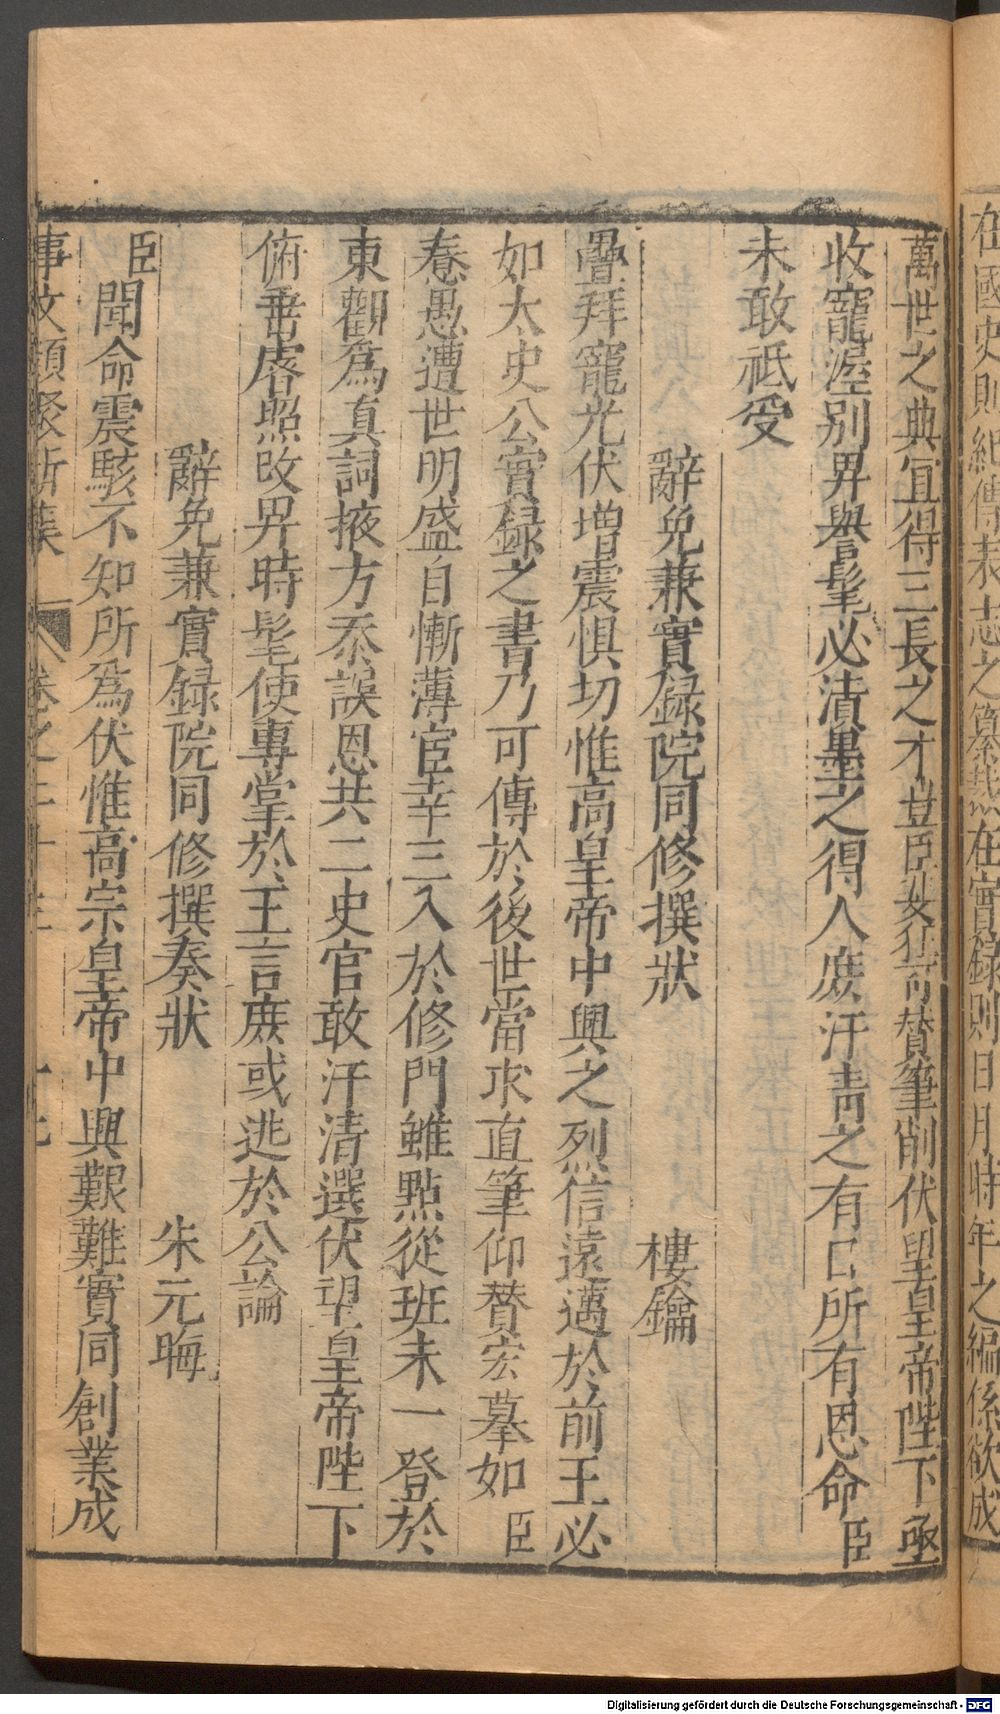 在國史則紀傳表志之纂然在實錄則日月時年之編係欲成
萬世之典宜得三長之才豈臣安猥可賛筆削伏望皇帝陛下亟
收寵渥别畀譽髦必漬墨之得人庻汗青之有日所有恩命臣
未敢祗受
辭免兼實録院同修撰狀　樓鑰
疊拜寵光伏增震惧切惟高皇帝中興之烈信遠邁於前王必
如太史公實録之書乃可傳於後世當求直筆仰賛宏摹如臣
惷愚遭世明盛自慚薄宦幸三入於修門雖點從班未一登於
東觀爲真詞掖方忝誤恩共二史官敢汗清選伏望皇帝陛下
俯垂睿照改畀時髦使專掌於王言庻或逃於公論
辭免兼實録院同修撰奏狀　朱元晦
臣聞命震駭不知所爲伏惟高宗皇帝中興艱難實同創業成
事文類聚新集　卷之二十　十九
Digitalisierung gefördert durch die Deutsche Forschungsgemeinschaft - DFG